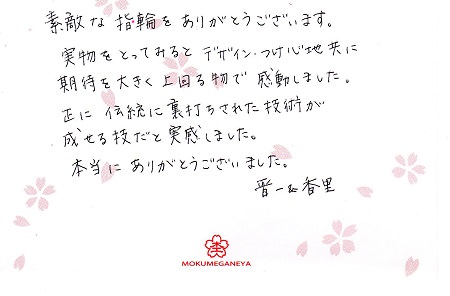 素敵な指輪をありがとうございます。
実物をとってみるとデザイン・つけ心地共に
期待を大きく上回る物で感動しました。
正に伝統に裏打ちされた技術が
成せる技だと実感しました。
本当にありがとうございました。
晋一&香里
MOKUMEGANEYA